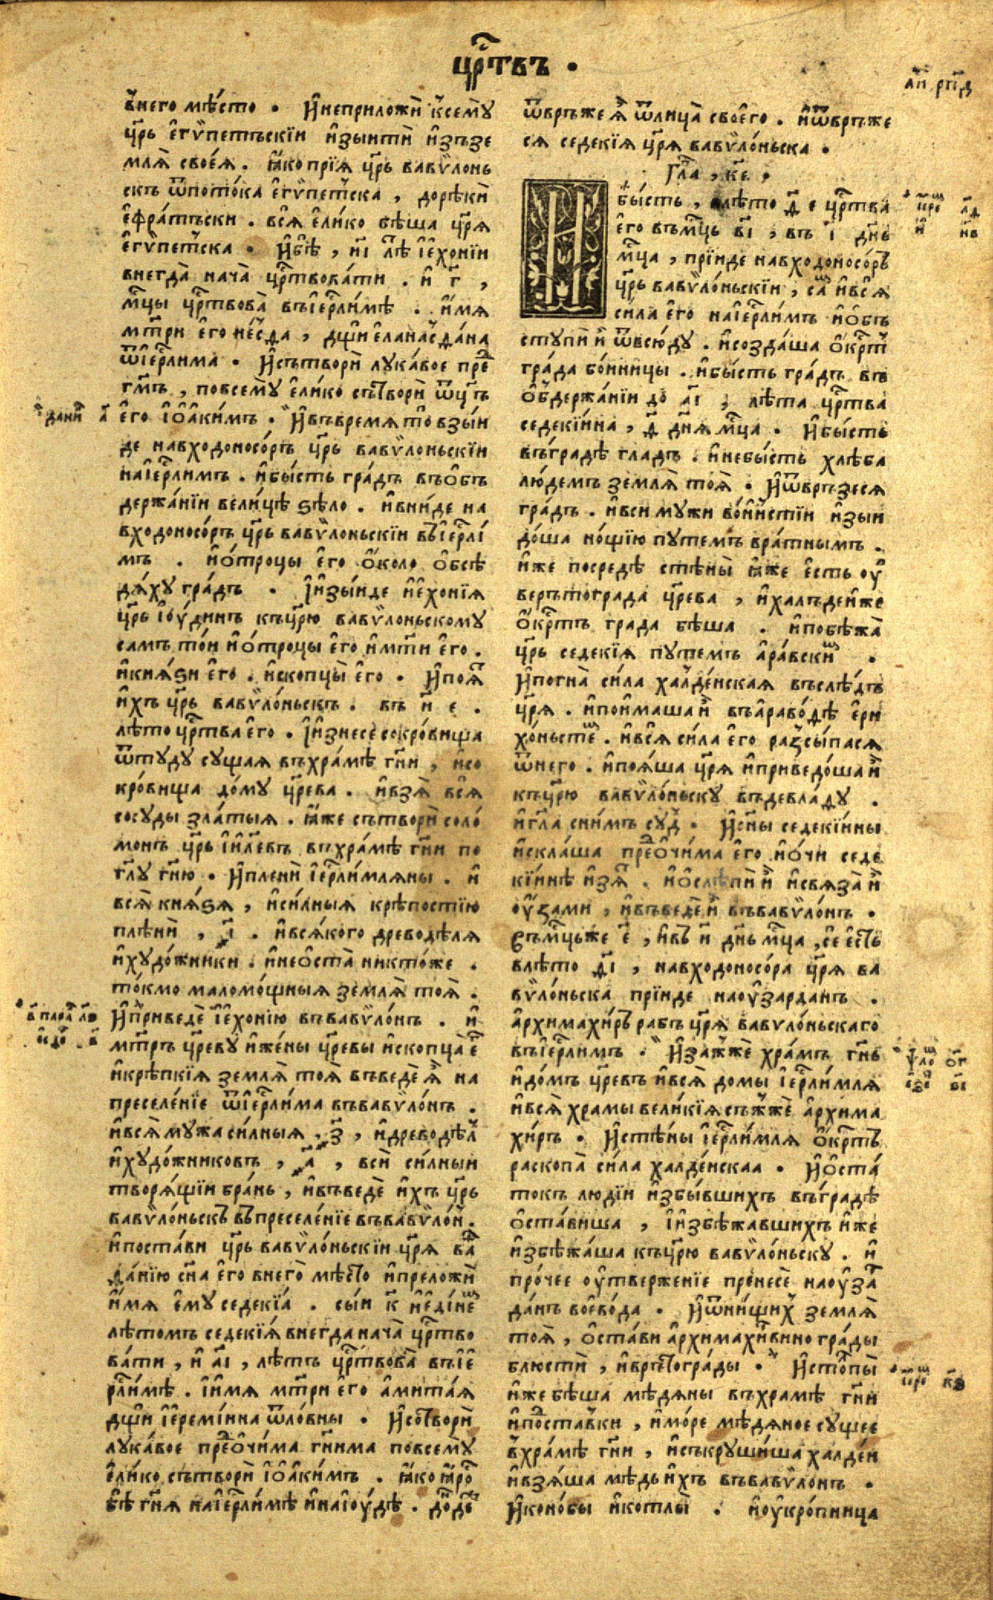 цр҃твъ ·
л҃п рп҃д
внего мѣсто · И҆неприложѝ ксемꙋ
цр҃ь е҆гѵ̈петъскїи и҆зыитѝ и҆зъзе
млѧ̀ своеѧ̀. ꙗ҆ко прїѧ цр҃ь вавѷлонь
скъ ѿпото́ка е҆гѵ̈пет̾ска , дорѣкѝ
е҆фра́тъски . всѧ̀ е҆ли́ко бѣ́ша цр҃ѧ
е҆гѵ̈пет̾ска · И҆бѣ̀ , и҃і лѣ̀ І҆ехо́нїи
внегда̀ нача̀ цр҃твова́ти . и҆ г҃ ,
мц҃ы цр҃твова̀ въІ҆ерл҃и́мѣ . и҆́мѧ
мт҃ри е҆го̀ не́сѳа , дщ҃и е҆лана́сѳана
ѿІ҆ерл҃има · И҆сътворѝ лꙋка́вое пре
гм҃ъ , повсемꙋ̀ е҆ли́ко сътворѝ ѿц҃ъ
дани҃ а҃ е҆го̀ І҆ѡ҆аки́мъ · И҆въвремѧ то̀ взы́и
де навходоносо́ръ цр҃ь вавѷло́ньскїи
наІ҆ерл҃имъ . и҆бы́сть гра́дъ въѻ҆бъ
держа́нїи вели́цѣ ѕѣло̀ . и҆вни́де на
входоносо́ръ цр҃ь вавѷло́ньскїи въІ҆ерл҃и́
мъ . и҆ѻ҆́троцы е҆го̀ ѻ҆́коло ѻ҆бсѣ
дѧ́хꙋ гра́дъ · І҆изы́иде и҆е҆хо́нїѧ
цр҃ь І҆ꙋ́динъ къцр҃ю вавѷло́ньскомꙋ
самъ то́и и҆ѻ҆́троцы е҆го̀ и҆мт҃и е҆го̀ .
и҆кнѧ́ѕи е҆го̀ . и҆скопцы̀ е҆го̀ · И҆поѧ̀
и҆́хъ цр҃ь вавѷло́ньскъ . въ и҆ е҃ .
лѣто цр҃тва е҆го̀ . І҆изнесѐ сокро́вища
ѿтꙋ́дꙋ сꙋ́щаѧ въхра́мѣ гн҃и , и҆со
кро́вища до́мꙋ цр҃ева . и҆взѧ̀ всѧ̀
сосꙋ́ды зла́тыѧ . ꙗ҆же сътворѝ соло́
монъ цр҃ь і҆и҃левъ въхра́мѣ гн҃и по
гл҃ꙋ гн҃ю · И҆пленѝ І҆ерл҃имлѧны . и҆
всѧ̀ кнѧ́ѕѧ , и҆си́лныѧ крѣ́постїю
плѣнѝ , І҃ . и҆всѧ́кого древодѣ́лѧ
и҆хꙋдо́жники . и҆неѻ҆ста̀ никто́же .
то́кмо маломо́щныѧ землѧ̀ тоѧ̀ .
в҃ парал҃ лѕ҃ И҆приведѐ І҆ехо́нїю въвавѷло́нъ . и҆
мт҃ръ цр҃евꙋ и҆же́ны цр҃евы и҆скопца̀ е҆г҃
и҆крѣ́пкїѧ землѧ̀ тоѧ̀ въведѐ ѧ҆̀ на
преселе́нїе ѿІ҆ерл҃има въвавѷло́нъ .
и҆всѧ̀ мꙋ́жа си́лныѧ , з҃ , и҆древодѣл҃
и҆хꙋдо́жниковъ , а҃ , всѝ си́лныи
творѧ́щїи бра́нь , и҆въведѐ и҆́хъ цр҃ь
вавѷло́ньскъ въпреселе́нїе въвавѷло́н .
и҆поста́ви цр҃ь вавѷло́ньскїи цр҃ѧ ва
да́нїю сн҃а е҆го̀ внего̀ мѣ́сто и҆преложѝ
и҆́мѧ е҆мꙋ̀ седекі́а . сы́и к҃ и҆е҆ди́нѣм
лѣ́томъ седекі́ѧ внегда̀ нача̀ цр҃тво
ва́ти , и҆ а҃і , лѣ́тъ цр҃твова̀ въІ҆е
рл҃и́мѣ . І҆и́мѧ мт҃ри е҆го̀ а҆мита́ѧ
дщ҃и І҆еремі́ина ѿло́вны · И҆сътворѝ
лꙋка́вое преѻ҆чи́ма гн҃има повсемꙋ̀
е҆ли́ко сътворѝ І҆ѡ҆аки́мъ . ꙗ҆ко ꙗ҆рост
бѣ̀ гн҃ѧ наІ҆ерл҃и́мѣ и҆наІ҆ꙋ́дѣ . до́ндѣ
ѿврѣ́же ѧ҆̀ ѿлица̀ своего̀ . и҆ѿврѣже
сѧ седекі́ѧ цр҃ѧ вавѷло́ньска .
Гла҃ , к҃е ,
И
бы́сть , влѣ́то д҃ е цр҃тва пре҃ л҃д
его въмц҃ь в҃і , въ І҃ дн҃ь и҃ нв҃
мц҃а , прїи́де навходоносо́ръ
цр҃ь вавѷло́ньскїи , са́м и҆всѧ̀
си́ла е҆го̀ наІ҆ерл҃имъ и҆ѻ҆бъ
стꙋпѝ и҆̀ ѿвсю́дꙋ . и҆созда́ша ѻ҆́крт҃
гра́да бо́иницы . и҆бы́сть гра́дъ въ
ѻ҆бдержа́нїи до а҃і , лѣ́та цр҃тва
седекі́ина , д҃ дн҃ѧ мц҃а . И҆бы́сть
въгра́дѣ гла́дъ . и҆небы́сть хлѣ́ба
лю́демъ землѧ̀ тоѧ̀ . И҆ѿвръ́зесѧ
гра́дъ . и҆вси мꙋ́жи во́инстїи и҆зыи
до́ша но́щїю пꙋте́мъ вра́тнымъ .
и҆́же посредѣ̀ стѣ́ны ꙗ҆́же е҆́сть оу҆
верътогра́да цр҃ева , и҆халъде́и же
ѻ҆́крт҃ъ гра́да бѣ́ша . и҆побѣжа̀
цр҃ь седекі́ѧ пꙋте́мъ а҆ра́вским .
И҆погна̀ си́ла халде́искаѧ въслѣ́дъ
цр҃ѧ . и҆пои́маша и҆̀ въа҆раво́дѣ е҆ри
хо́ньстѣм . и҆всѧ̀ си́ла е҆го̀ разсы́пасѧ
ѿнего̀ . и҆поѧ́ша цр҃ѧ и҆приведо́ша и҆̀
къцр҃ю вавѷло́ньскꙋ въдевла́дꙋ .
и҆гл҃а сни́мъ сꙋ́д . И҆сн҃ы седекі́ины
и҆скла́ша преѻ҆чи́ма е҆го̀ и҆ѻ҆́чи седе
кі́инѣ и҆зѧ̀т . и҆ѻ҆слѣпѝ и҆̀ и҆свѧза̀ и҆̀
оу҆́зами , и҆въведѐ и҆̀ въвавѷло́нъ .
Въмц҃ьже е҃ , и҆въ и҃ дн҃ь мц҃а , се е҆́сть
влѣ́то д҃і , навходоносо́ра цр҃ѧ ва
вѷло́ньска прїи́де наоу҆зарда́нъ .
а҆рхимахи́ръ ра́бъ цр҃ѧ вавѷло́ньскаго
въІ҆ерл҃имъ . И҆зажжѐ хра́мъ гн҃ь ѱало҃ о҃г
и҆до́мъ цр҃евъ и҆всѧ̀ до́мы І҆ерл҃имлѧ е҆зе҃ в҃і
и҆всѧ̀ хра́мы вели́кїѧ съжжѐ а҆рхима
хи́ръ . И҆стѣ́ны І҆ерл҃имлѧ ѻ҆́крт҃ъ
раскопа̀ си́ла халде́искаа . И҆ѻ҆ста́
токъ людїи и҆збы́вшихъ въгра́дѣ
ѻ҆ста́виша , І҆избѣжа́вшихъ и҆́же
и҆збѣжа́ша къцр҃ю вавѷло́ньскꙋ . и҆
про́чее оу҆твержє́нїе пронесѐ наоу҆за҃
да́нъ воево́да . И҆ѿни́щих землѧ̀
тоѧ̀ , ѻ҆ста́ви а҆рхимахи́ръ вино гра́ды
блюстѝ , и҆връ́тогра́ды . И҆столпы̀
и҆́же бѣ́ша мѣ́дѧны въхра́мѣ гн҃и і҆ере҃ к҃з
и҆поста́вки , и҆мо́ре мѣ́дѧное сꙋ́щее
вхра́мѣ гн҃и , и҆съкрꙋши́ша халде́и
и҆взѧ́ша мѣ́дь и҆́хъ въвавѷло́нъ .
И҆коно́бы и҆котлы̀ . и҆оу҆кро́пница